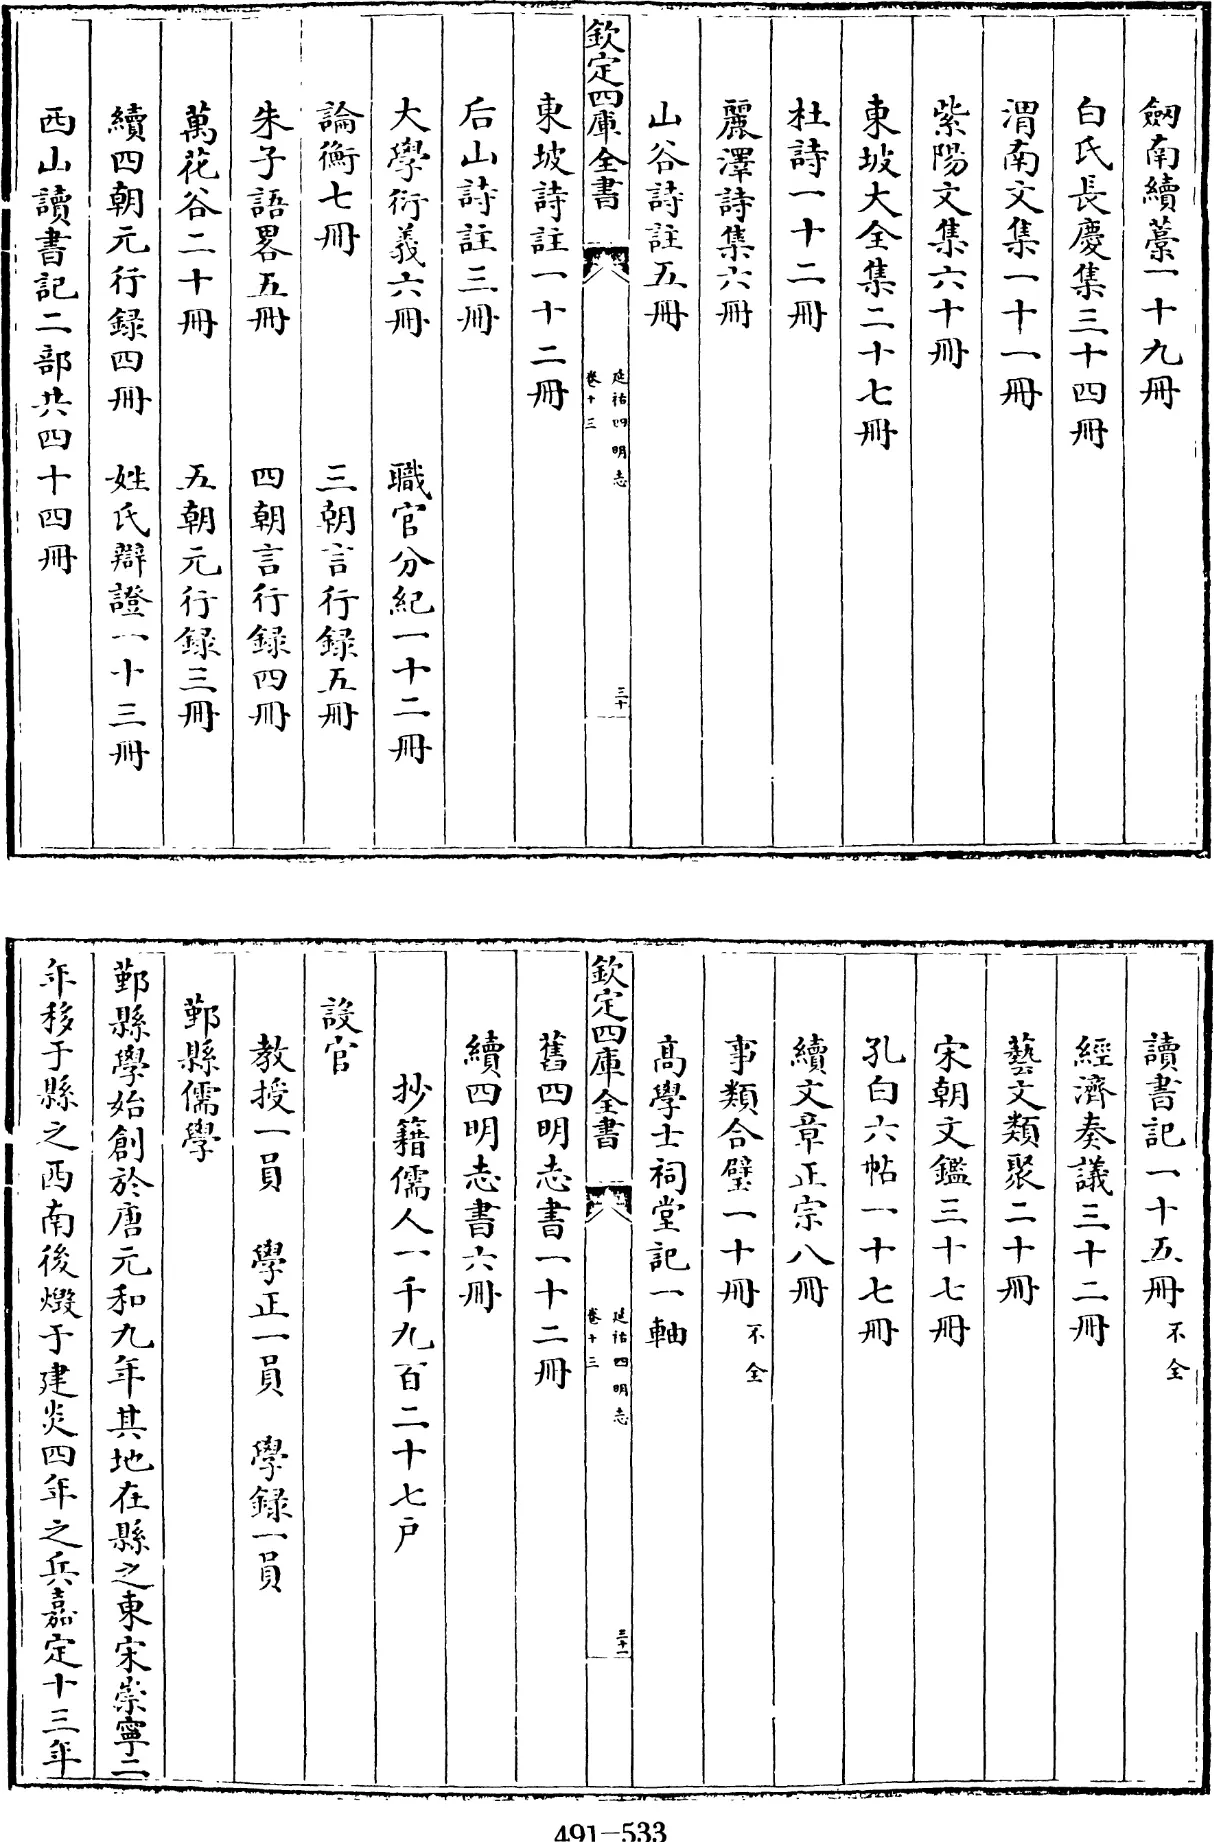 劔南續藁一十九冊
白氏長慶集三十四冊
渭南文集一十一冊
紫陽文集六十冊
東坡大全集二十七冊
杜詩一十二冊
麗澤詩集六冊
山谷詩註五冊
欽定四庫全書
延祐四明志
卷十三
三十
東坡詩註一十二冊
后山詩註三冊
大學衍義六冊 職官分紀一十二冊
論衡七冊 三朝言行録五冊
朱子語畧五冊 四朝言行録四冊
萬花谷二十冊 五朝元行録三冊
續四朝元行録四冊 姓氏辯證一十三冊
西山讀書記二部共四十四冊
讀書記一十五冊不全
經濟奏議三十二冊
藝文類聚二十冊
宋朝文鑑三十七冊
孔白六帖一十七冊
續文章正宗八冊
事類合璧一十冊不全
髙學士祠堂記一軸
欽定四庫全書
延祐四明志
卷十三
三十一
舊四明志書一十二冊
續四明志書六冊
抄籍儒人一千九百二十七户
設官
教授一員 學正一員 學録一員
鄞縣儒學
鄞縣學始創於唐元和九年其地在縣之東宋崇寧二
年移于縣之西南後燬于建炎四年之兵嘉定十三年
491—533